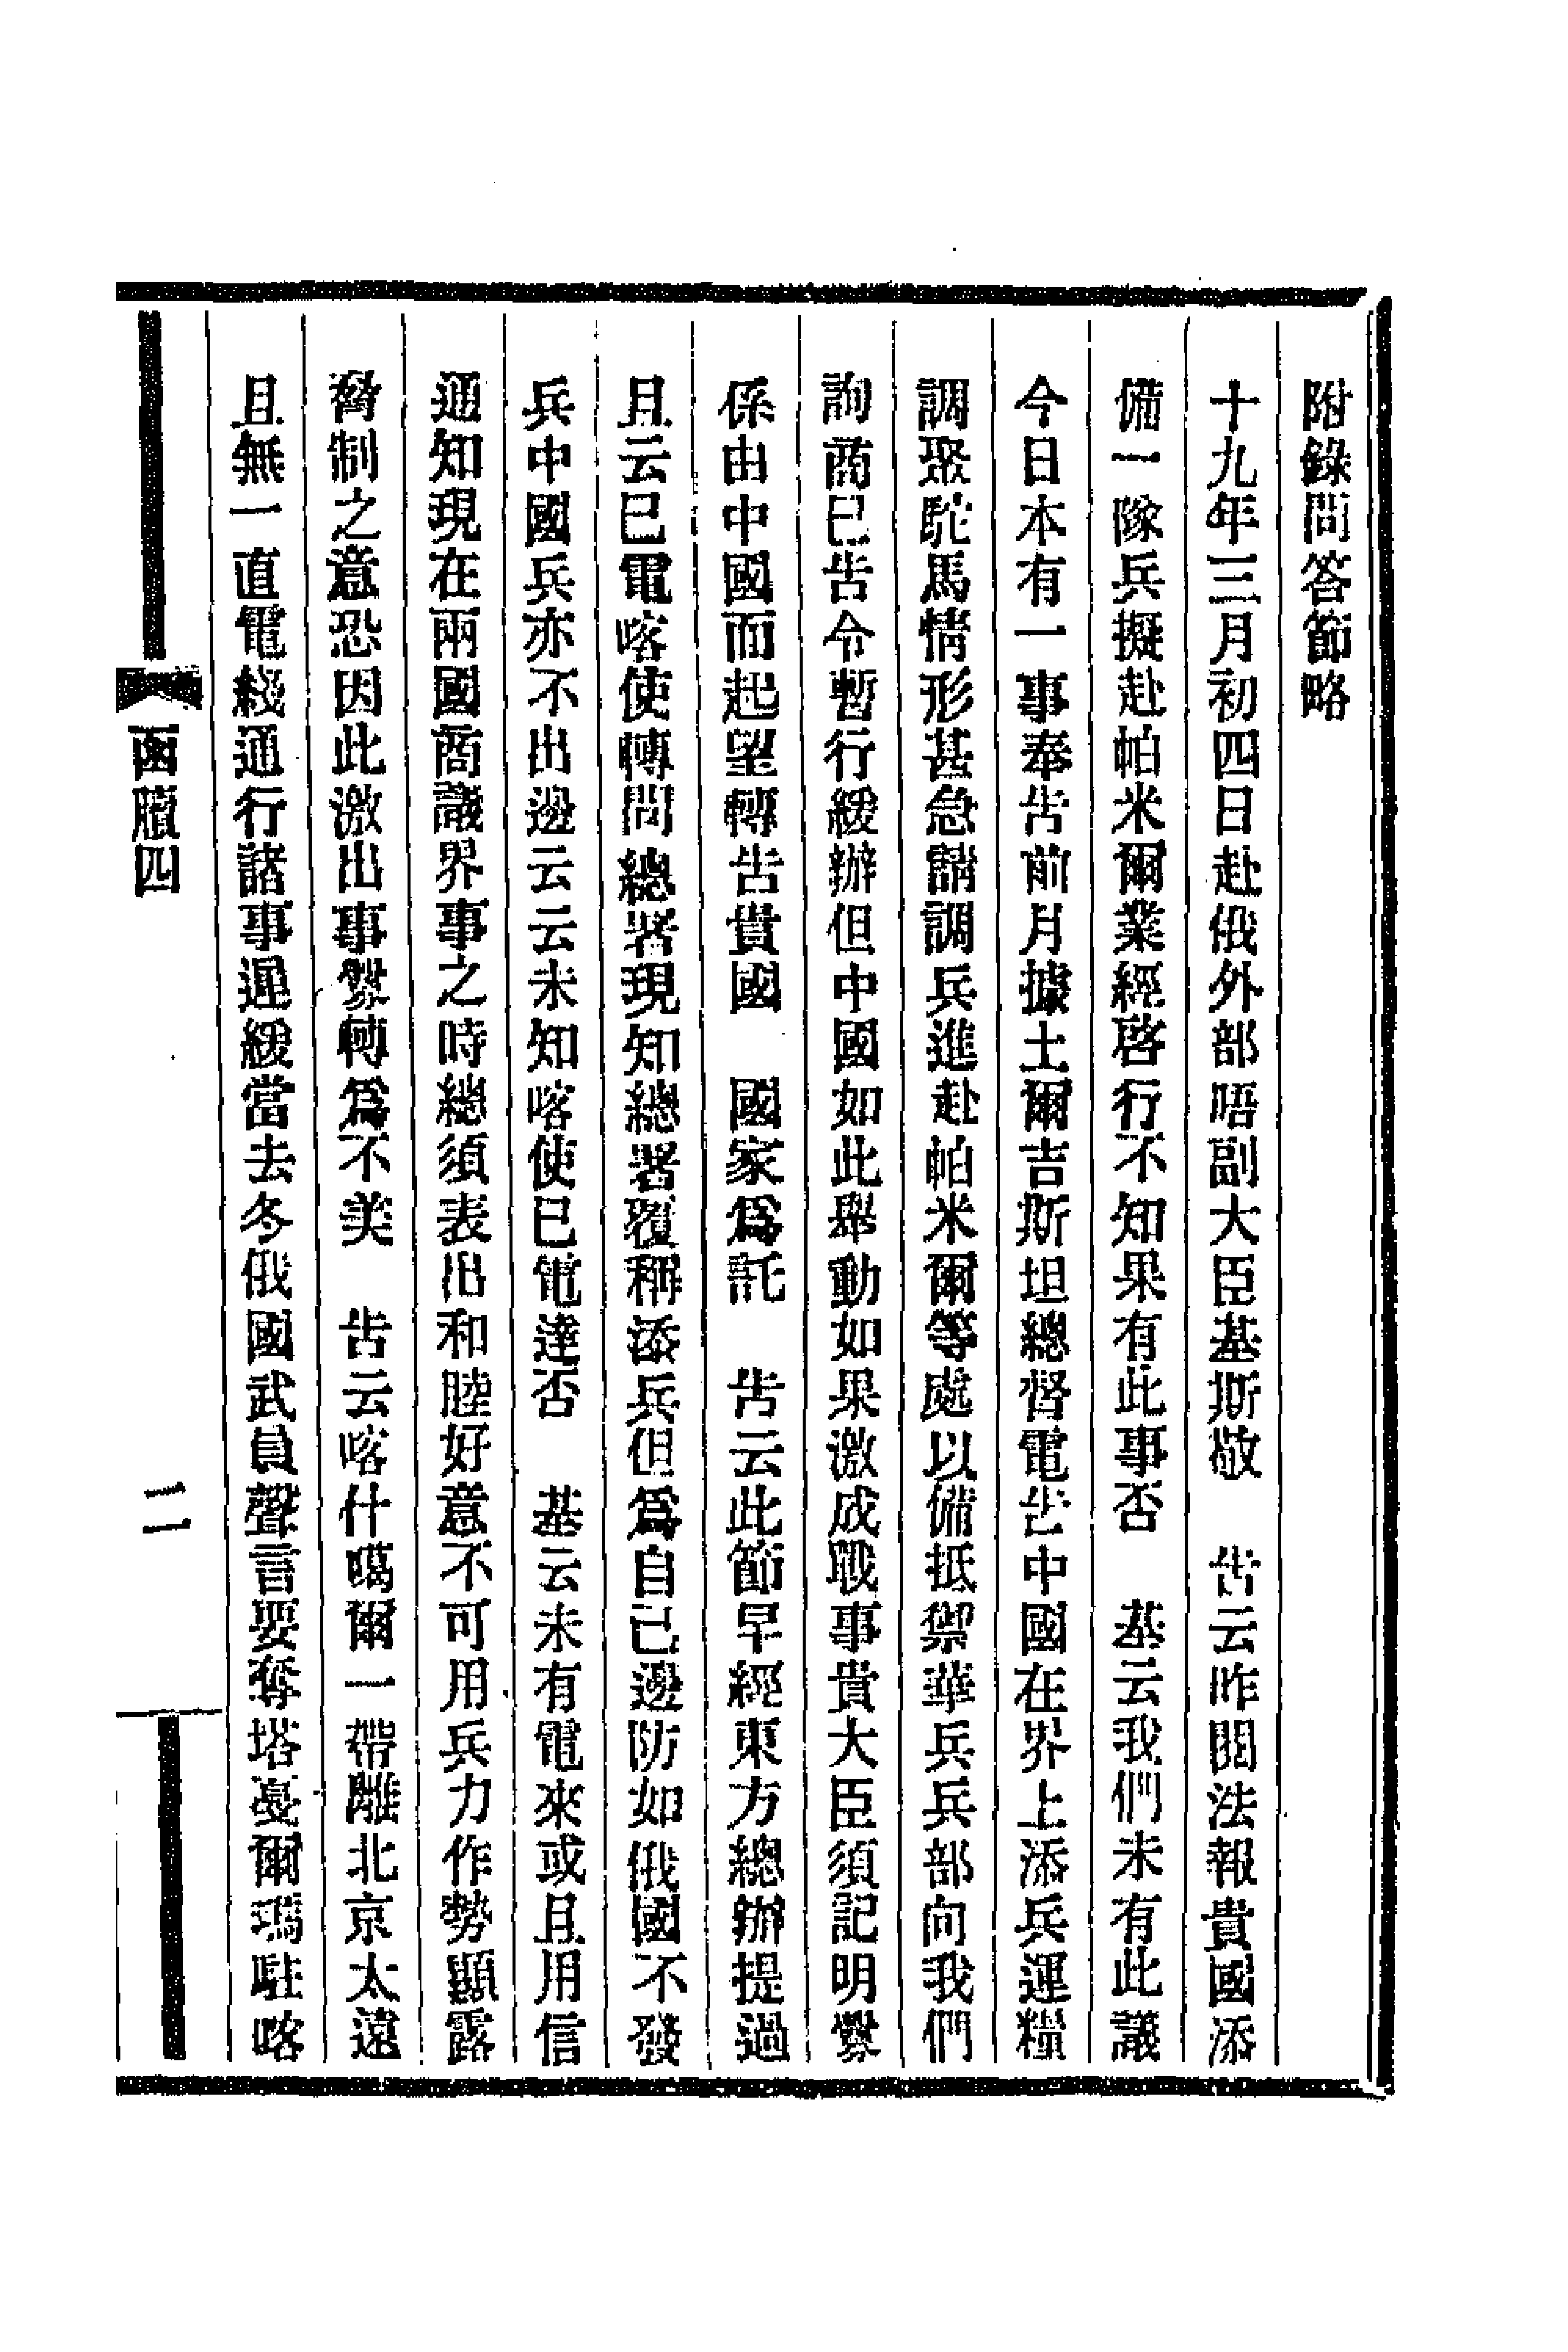 附錄問答節略
十九年三月初四日赴俄外部晤副大臣基斯敬　告云昨閱法報貴國添
備一隊兵擬赴帕米爾業經啓行不知果有此事否　基云我們未有此議
今日本有一事奉告前月據土爾吉斯坦總督電告中國在界上添兵運糧
調聚駝馬情形甚急請調兵進赴帕米爾等處以備抵禦華兵兵部向我們
詢商已告令暫行緩辦但中國如此舉動如果激成戰事貴大臣須記明釁
係由中國而起望轉告貴國　國家爲託　告云此節早經東方總辦提過
且云已電喀使轉問總署現知總署覆稱添兵但爲自己邊防如俄國不發
兵中國兵亦不出邊云云未知喀使已電達否　基云未有電來或且用信
通知現在兩國商議界事之時總須表出和睦好意不可用兵力作勢顯露
脅制之意恐因此激出事釁轉爲不美　告云喀什噶爾一帶離北京太遠
且無一直電綫通行諸事遲緩當去冬俄國武員聲言要奪塔戞爾瑪駐喀
函牘四
二